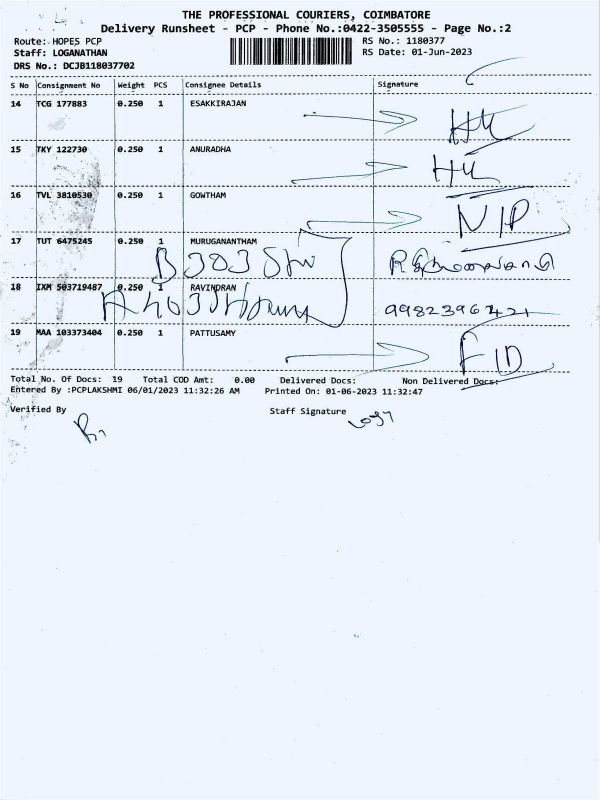 THE PROFESSIONAL COURIERS, COIMBATORE
Delivery Runsheet - PCP - Phone No.:0422-3505555 - Page No.:2
Route: HOPES PCP RS No.: 1180377
Staff: LOGANATHAN RS Date: 01-Jun-2023
DRS No.: DCJB118037702
S No Consignment No Weight PCS Consignee Details Signature
14 TCG 177883 0.250 1 ESAKKIRAJAN
15 TKY 122730 0.250 1 ANURADHA
16 TVL 3810530 0.250 1 GOWTHAM
17 TUT 6475245 0.250 1 MURUGANANTHAM
18 IXM 503719487 0.250 1 RAVINDRAN
9982396421
19 MAA 103373404 0.250 1 PATTUSAMY
Total No. Of Docs: 19 Total COD Amt: 0.00 Delivered Docs: Non Delivered Docs:
Entered By :PCPLAKSHMI 06/01/2023 11:32:26 AM Printed On: 01-06-2023 11:32:47
Verified By Staff Signature